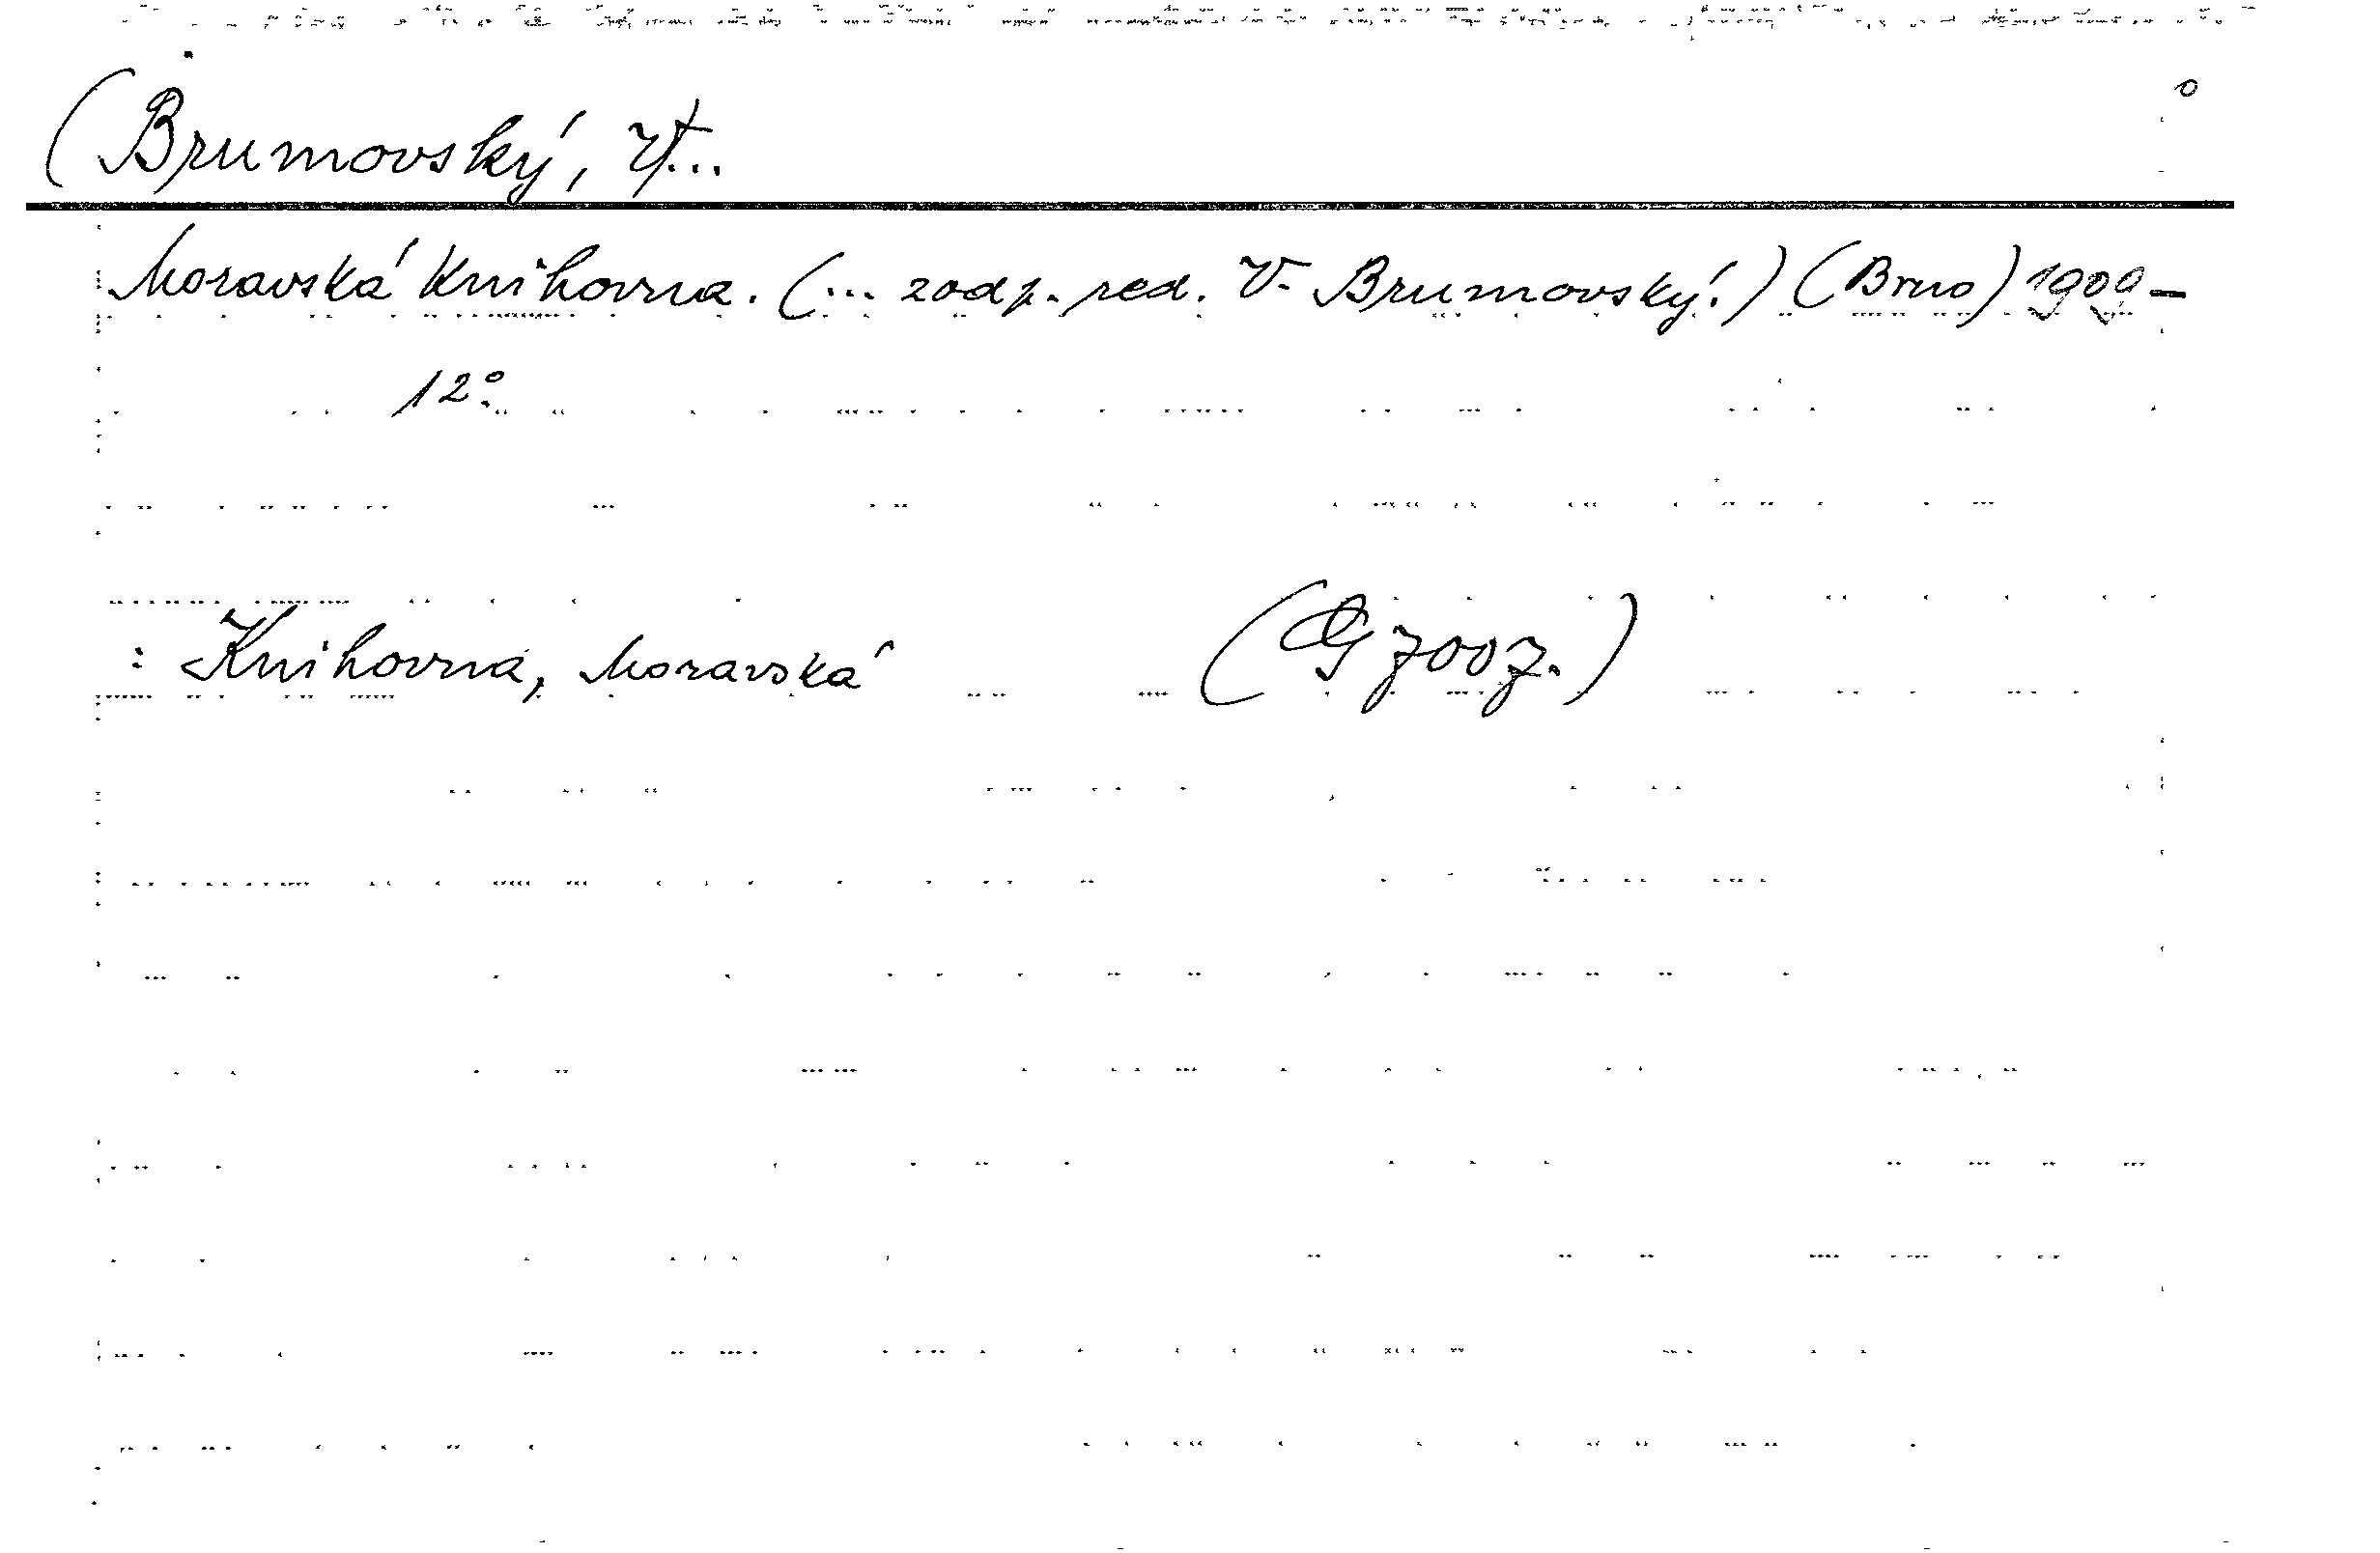 (Brumovský, V...
Moravská Knihovna. (... zodp. red. V. Brumovský.) (Brno) 1909 –
12°.
: Knihovna, Moravská (G 7007.)